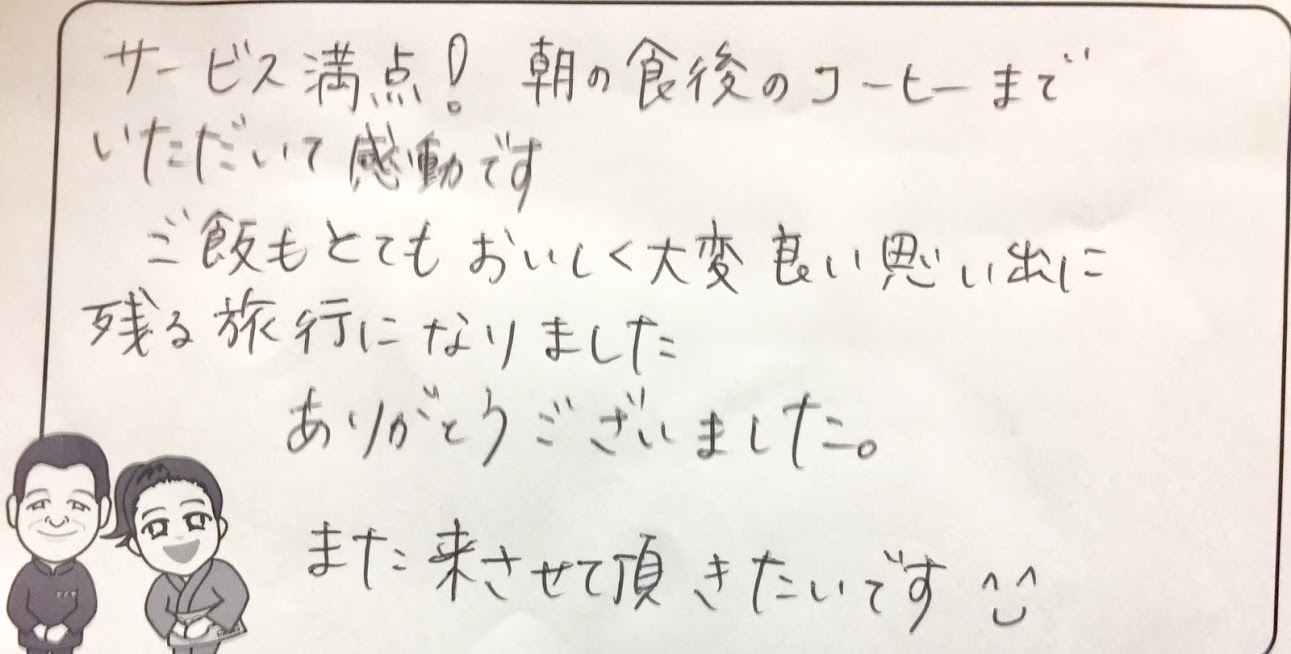 サービス満点! 朝の食後のコーヒーまで
いただいて感動です
ご飯もとてもおいしく大変良い思い出に
残る旅行になりました
ありがとうございました。
また来させて頂きたいです ^^